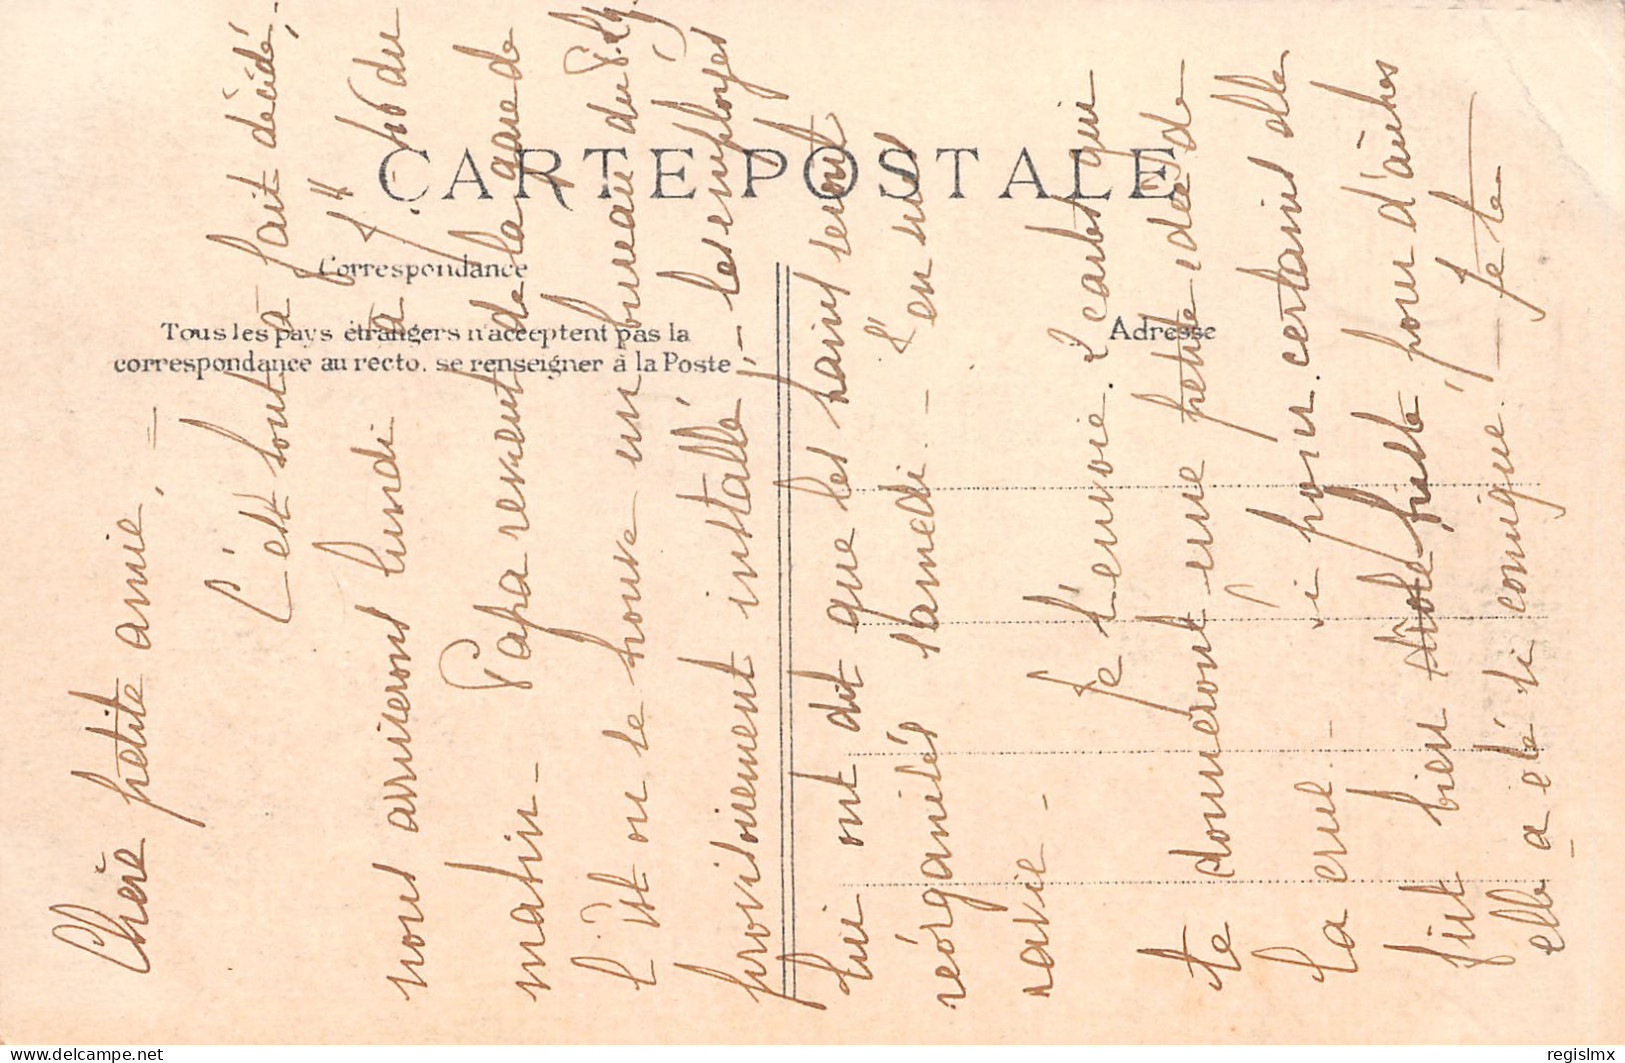 CARTE POSTALE
Correspondance
Tous les pays étrangers n'acceptent pas la
correspondance au recto, se renseigner à la Poste
Adresse
Chère petite amie, —
C'est tout à fait décidé,
nous arriverons lundi à 7h 40 du
matin — Papa revient de la gare de
l'Est où se trouve un bureau du P.L.M.
provisoirement installé, — les employés
lui ont dit que les trains seront
réorganisés samedi. — J'en suis
ravie —
Je t'envoie 2 cartes qui
te donneront une petite idée de
la crue — Si pour certains elle
fut bien triste, pour d'autres
elle a été si comique! — Jete
regislmx